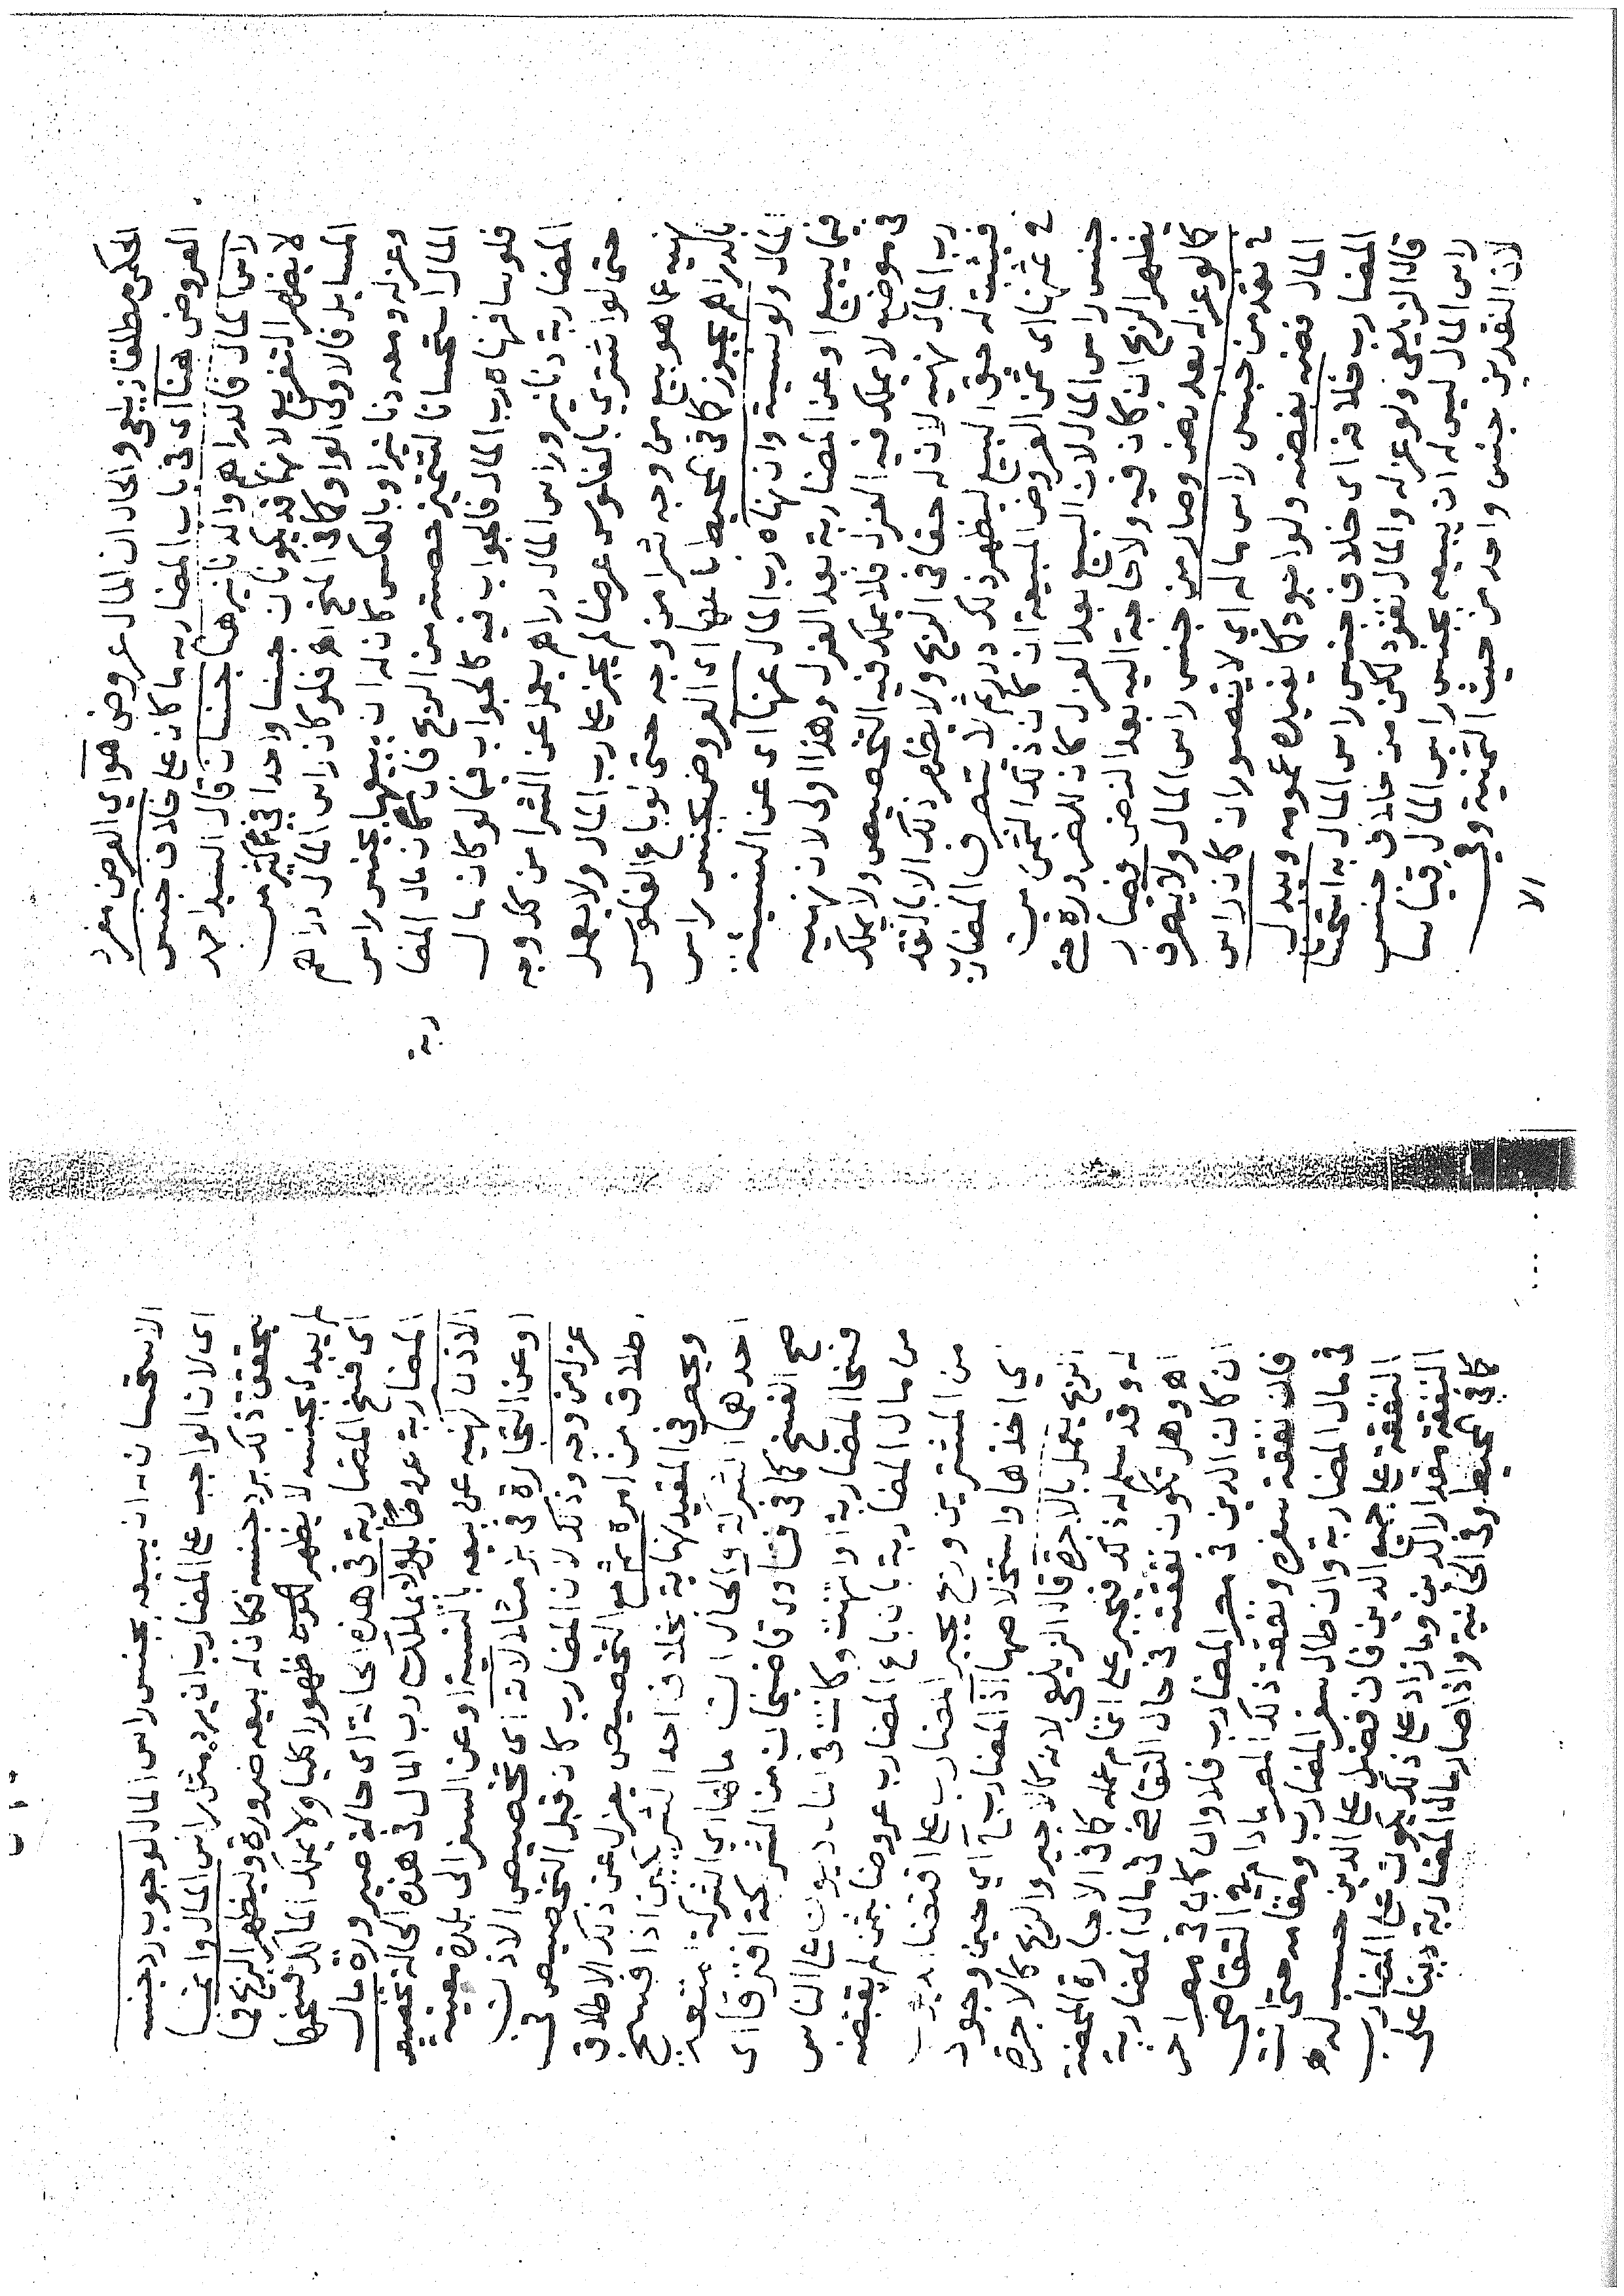 الحكم مطلقا زيلعي والحال ان المال عروض هو اي العرض مفرد
العروض هنا اي في باب المضاربة ما كان على خلاف جنس
راس المال فالدراهم والدنانير هنا جنسان قال السيد احمد
لا يظهر التفريع لانهما قد يكونان جنسا واحدا في كثير من
المسايل فالاولى الواو كما في المنح اهـ فلو كان راس المال دراهم
وعزله ومعه دنانير او بالعكس كان له ان يبيعها بجنس راس
المال استحسانا لتتميز حصته من الربح فان كان مال المضا
ربة
فلوسا فنهاه رب المال فالجواب فيه كالجواب فيما لو كان مال
المضاربة دنانير وراس المال دراهم يعمل عن الشرا من كل وجه
حتى لو اشترى بالفلوس عرضا لم يجز على رب المال ولا يعمل
نهيه عما هو بيع من وجه شرا من وجه حتى لو باع الفلوس
بالدراهم يجوز كما في المحيط باعها اي العروض بجنس راس
المال ولو نسيئة وان نهاه رب المال عنها اي عن النسيئة
فيما يبيع او عن المضاربة بعد العزل وهذا اولى لان نهيه
في موضع لا يملك فيه العزل فلا يملك فيه التخصيص ولا يملك
رب المال نهيه لان له حقا في الربح ولا يظهر ذلك الا بالنقد
فيثبت له حق البيع ليظهر ذلك درر ثم لا يتصرف المضارب
في ثمنها اي ثمن العروض المبيعة ان كان ذلك الثمن من
جنس راس المال لان البيع بعد العزل كان للضرورة حتى
يظهر الربح ان كان فيه ولا حاجة اليه بعد النض فصار
كما لو عزله بعد نض وصار من جنس راس المال ولا يتصرف
في نقد من جنس راس ماله اي لا يتصور ان كان راس
المال فضه بفضه ولو اجود كما يفيده عمومه ويبدل
المضارب خلافه اي خلاف جنس راس المال به استحسانا
قال الزيلعي ولو عزله والمال نقود لكن من خلاف جنس
راس المال ليس له ان يبيعه بجنس راس المال قياسا
لان النقدين جنس واحد من حيث الثمنية وفي
الا
الاستحسان له ان يبيعه بجنس راس المال لوجوب رد جنسه
اي لان الواجب على المضارب ان يرد مثل راس المال وانما
يتحقق ذلك برد جنسه فكان له بيعه ضرورة وليظهر الربح فما
لم يبدل بجنسه لا يظهر ظهورا كليا ولا يملك المالك فسخها
اي فسخ المضاربة في هذه الحالة اي حالة صيرورة مال
المضاربة عروضا بل ولا يملك رب المال في هذه الحالة تخصيص
الاذن لنهيه عن بيعه بالنسيئة او عن السفر الى بلدة معينة
او عن التجارة في بز مثلا لانه اي تخصيص الاذن
عزل من وجه وذلك لان المضارب كان قبل التخصيص في
اطلاق من امره ثم مع التخصيص يعزل عن ذلك الاطلاق
ويحصر في المقيد نهاية بخلاف احد الشريكين اذا فسخ
احدهما الشركة والحال ان مالها اي الشركة امتعة
صح الفسخ كما في فتاوى قاضيخان من الشركة افترقا اي
فسخا المضاربة او انتهت وكانت في المال ديون على الناس
من مال المضاربة بان باع المضارب عروضا بثمن لم يقبضه
من المشترين وربح يجبر المضارب على اقتضاء الديون
اي اخذها واستخلاصها اذ المضارب اي حين وجود
الربح يعمل بالاجرة قال الزيلعي لانه كالاجير والربح كالاجرة
له وقد سلم له ذلك فيجبر على اتمام عمله كما في الاجارة المحضة
اهـ وهل تكون نفقته في حال التقاضي في مال المضاربة
ان كان الدين في مصر المضارب فلا وان كان في مصر اخر
فان نفقة سفره ونفقة ذلك المصر ما دام في التقاضي
في مال المضاربة وان طال سفر المضارب ومقامه حتى اتت
النفقة على جميع الدين فان فضل على الدين حسب له
النفقة مقدار الدين وما زاد على ذلك يكون على المضارب
كما في المحيط وفي الخانية واذا صار مال المضاربة دينا على